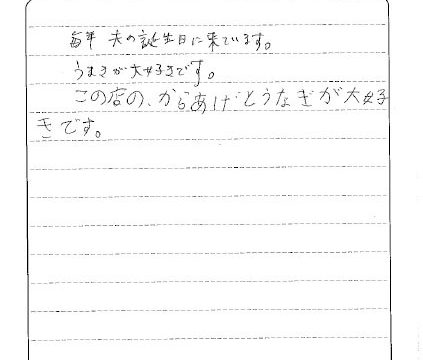 毎年 夫の誕生日に来ています。
うまきが大好きです。
この店の、からあげとうなぎが大好
きです。